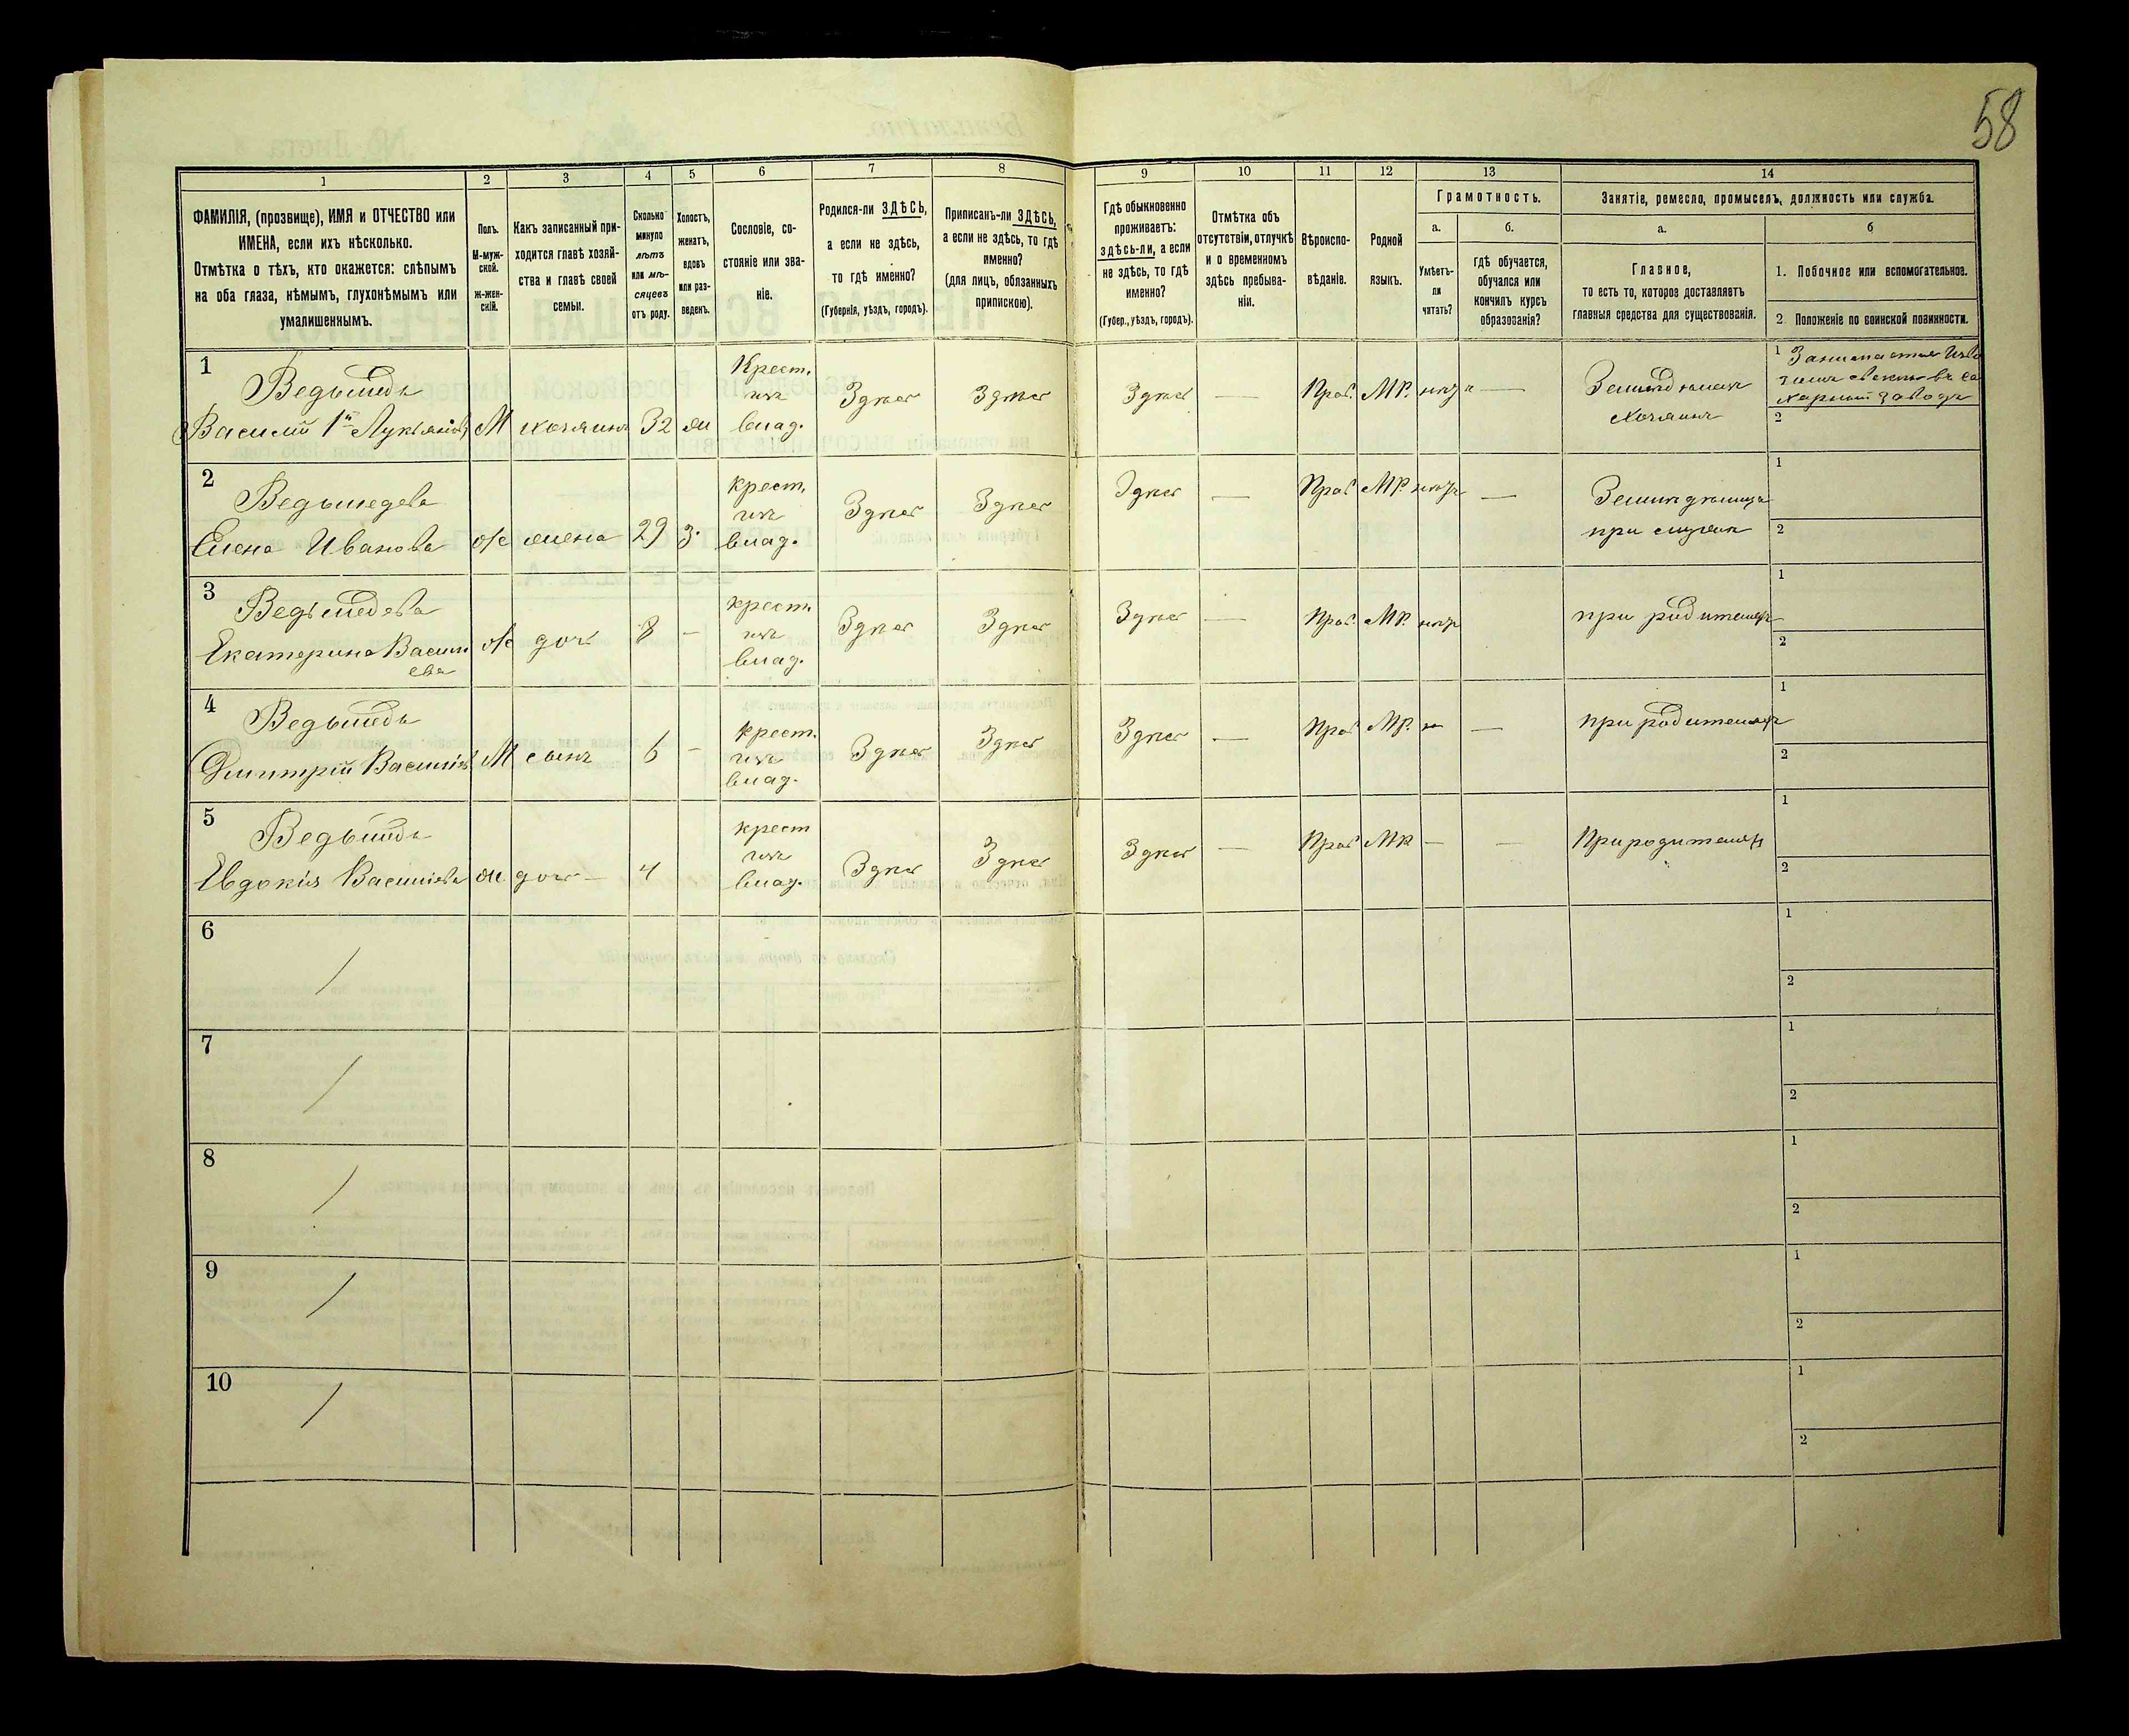 58
1 2 3 4 5 6 7 8 9 10 11 12 13 14
ФАМИЛІЯ, (прозвище), ИМЯ и ОТЧЕСТВО или
ИМЕНА, если ихъ нѣсколько.
Отмѣтка о тѣхъ, кто окажется: слѣпымъ
на оба глаза, нѣмымъ, глухонѣмымъ или
умалишеннымъ.
Полъ.
М-муж-
ской.
Ж-жен-
скій.
Какъ записанный при-
ходится главѣ хозяй-
ства и главѣ своей
семьи.
Сколько
минуло
лѣтъ
или мѣ-
сяцевъ
отъ роду.
Холостъ,
женатъ,
вдовъ
или раз-
веденъ.
Сословіе, со-
стояніе или зва-
ніе.
Родился-ли ЗДѢСЬ,
а если не здѣсь,
то гдѣ именно?
(Губернія, уѣздъ, городъ).
Приписанъ-ли ЗДѢСЬ,
а если не здѣсь, то гдѣ
именно?
(для лицъ, обязанныхъ
припискою).
Гдѣ обыкновенно
проживаетъ:
здѣсь-ли, а если
не здѣсь, то гдѣ
именно?
(Губер., уѣздъ, городъ).
Отмѣтка объ
отсутствіи, отлучкѣ
и о временномъ
здѣсь пребыва-
ніи.
Вѣроиспо-
вѣданіе.
Родной
языкъ.
Грамотность.
а.
Умѣетъ-
ли
читать?
б.
гдѣ обучается,
обучался или
кончилъ курсъ
образованія?
Занятіе, ремесло, промыселъ, должность или служба.
а.
Главное,
то есть то, которое доставляетъ
главныя средства для существованія.
б
1. Побочное или вспомогательное.
2. Положеніе по воинской повинности.
1
Василій 1й Лукьяновъ
М
хозяинъ
32
ж
Крест.
изъ
влад.
Здѣсь
Здѣсь
Здѣсь
—
Прав.
МР.
нѣтъ
—
хозяинъ
1
2
2
Елена Иванова
ж
жена
29
З.
крест.
изъ
влад.
Здѣсь
Здѣсь
Здѣсь
—
Прав
МР.
нѣтъ
—
при мужѣ
1
2
3
Екатерина Васил
ева
ж
доч
8
—
крест.
изъ
влад.
Здѣсь
Здѣсь
Здѣсь
—
Прав.
МР.
нѣтъ
при родителяхъ
1
2
4
Дмитрій Васильевъ
М
сынъ
6
—
крест.
изъ
влад.
Здѣсь
Здѣсь
Здѣсь
—
Прав
МР.
—
при родителяхъ
1
2
5
Евдокія Васильева
ж
доч
4
крест
изъ
влад.
Здѣсь
Здѣсь
Здѣсь
—
Прав
МР
—
—
При родителяхъ
1
2
6
1
2
7
1
2
8
1
2
9
1
2
10
1
2